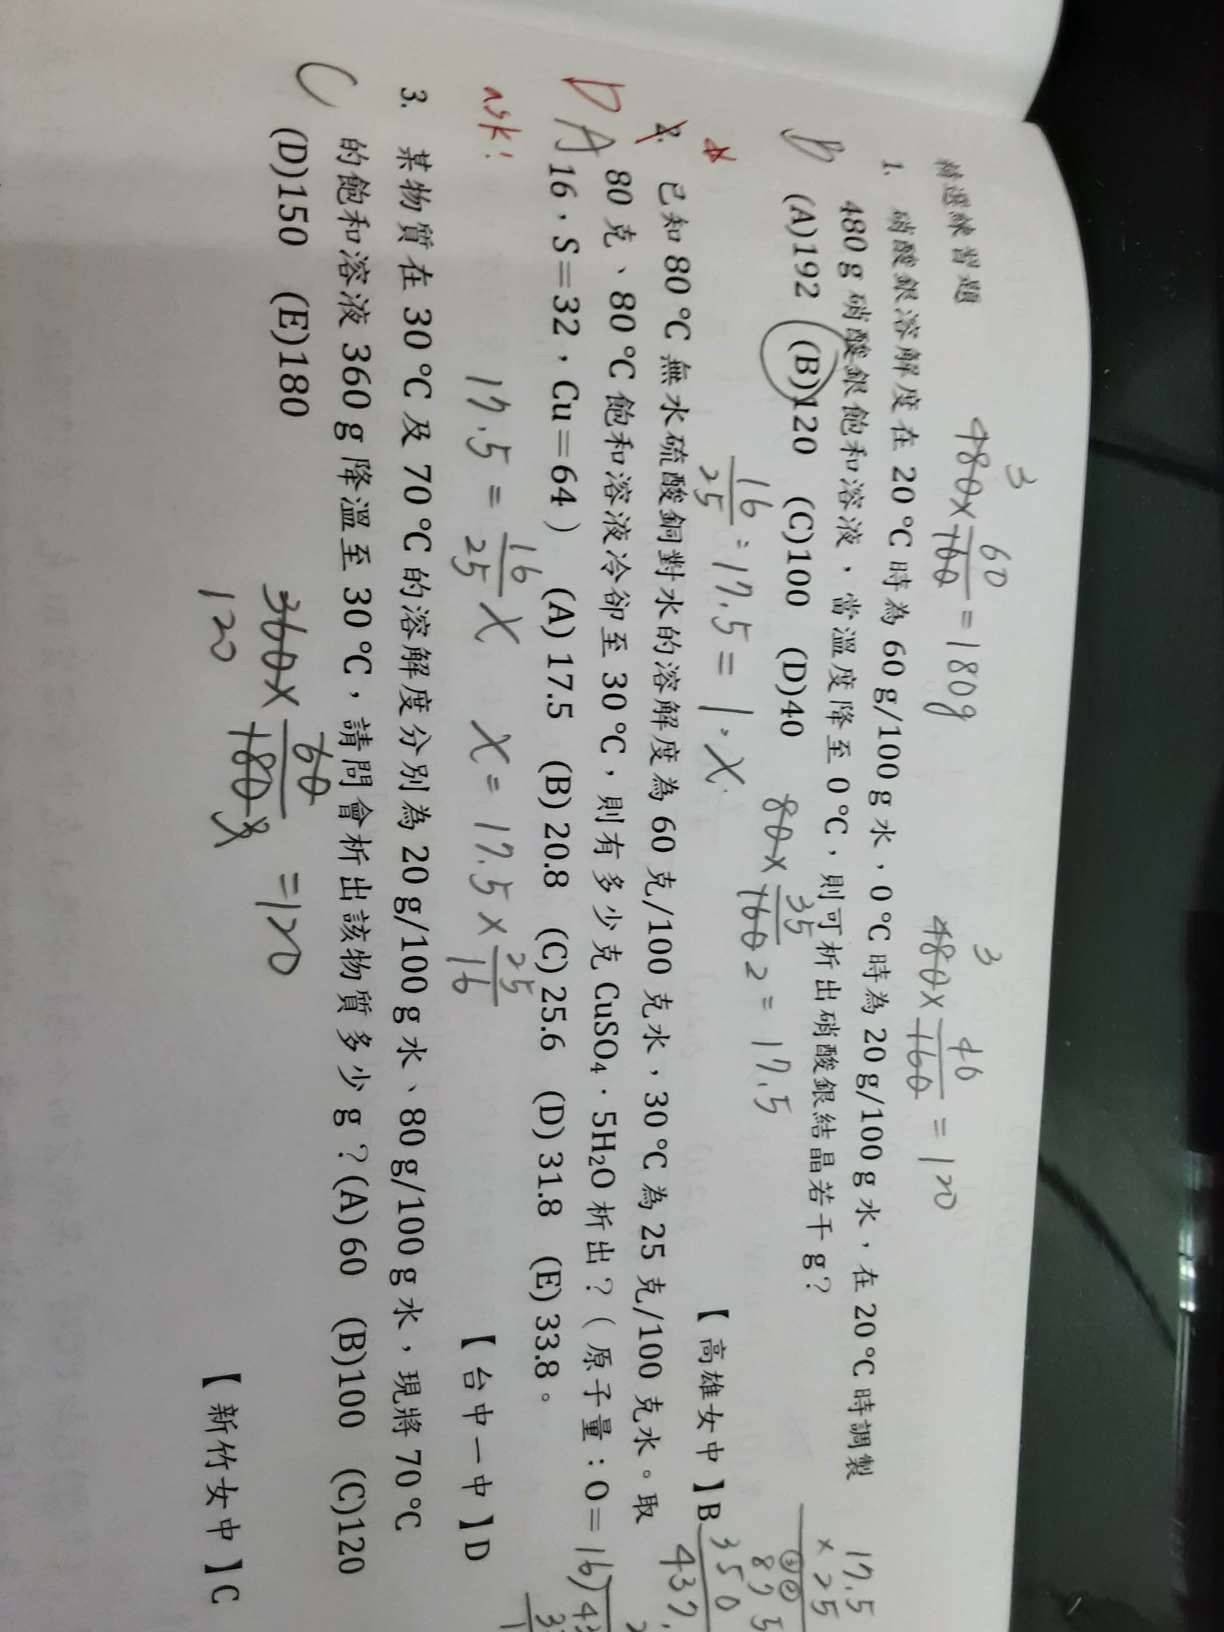 精選練習題
480×60/160=180g
3
480×40/160=120
3
1. 硝酸銀溶解度在 20℃時為 60 g/100 g 水，0℃時為 20 g/100 g 水，在 20℃時調製
480 g 硝酸銀飽和溶液，當溫度降至 0℃，則可析出硝酸銀結晶若干 g？
B
(A)192 (B)120 (C)100 (D)40
【高雄女中】B
16/25:17.5=1:x
80×35/160 2=17.5
17.5
×25
875
350
437
2. 已知 80℃無水硫酸銅對水的溶解度為 60 克/100 克水，30℃為 25 克/100 克水。取
80 克、80℃飽和溶液冷卻至 30℃，則有多少克 CuSO₄．5H₂O 析出？（原子量：O＝
DA
16，S＝32，Cu＝64） (A) 17.5 (B) 20.8 (C) 25.6 (D) 31.8 (E) 33.8。
【台中一中】D
ask:
17.5=16/25x x=17.5×25/16
3. 某物質在 30℃及 70℃的溶解度分別為 20 g/100 g 水、80 g/100 g 水，現將 70℃
的飽和溶液 360 g 降溫至 30℃，請問會析出該物質多少 g？(A) 60 (B)100 (C)120
C
(D)150 (E)180
【新竹女中】C
360×60/180=120
120